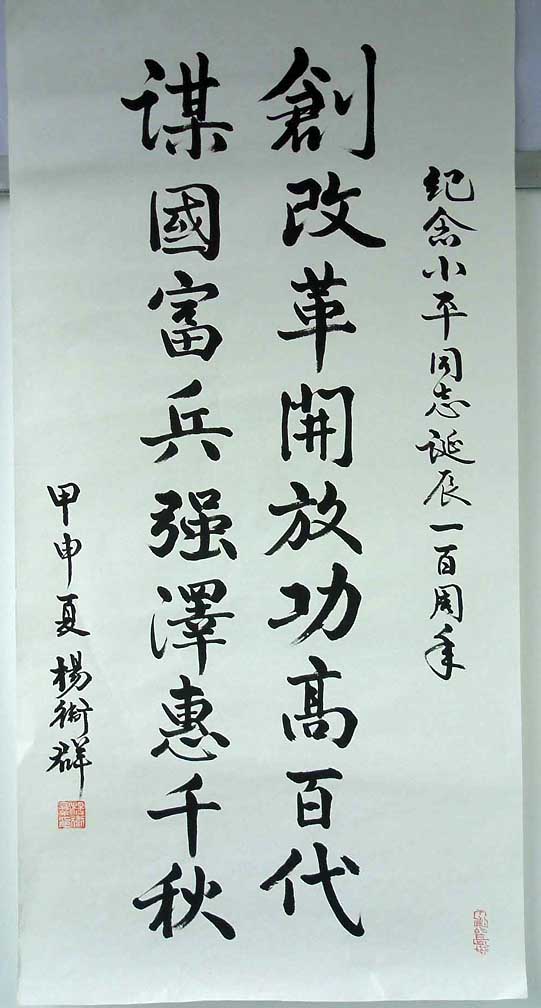 紀念小平同志誕辰一百周年
創改革開放功高百代
謀國富兵强澤惠千秋
甲申夏楊衛群